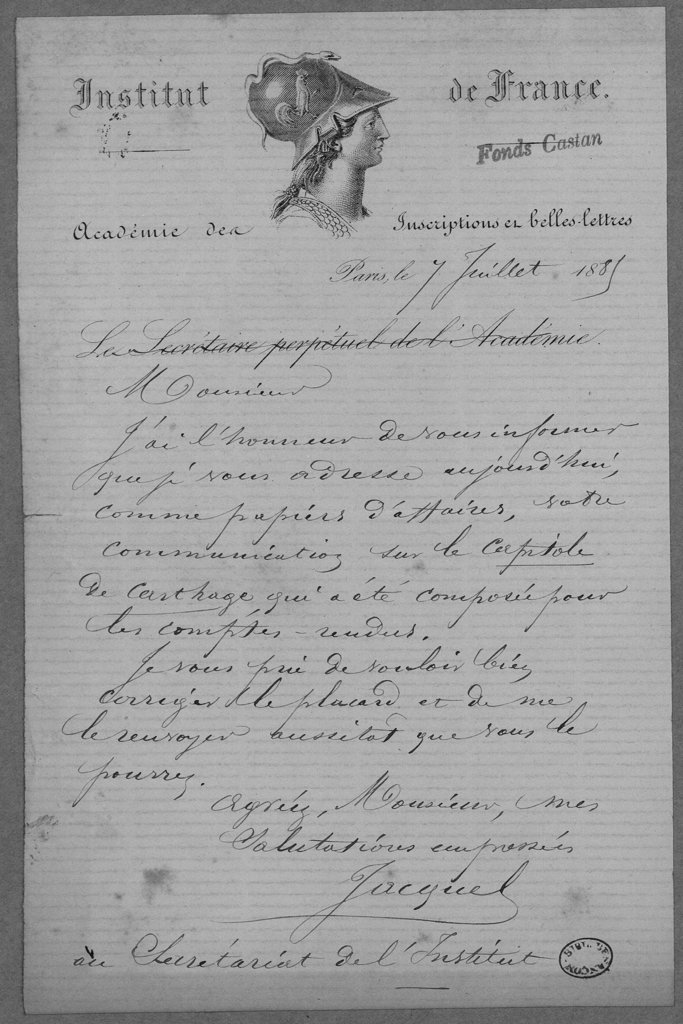 Institut de France.
Fonds Castan
Académie des Inscriptions et belles-lettres
Paris, le 7 Juillet 1885
Le Secrétaire perpétuel de l'Académie.
Monsieur
J'ai l'honneur de vous informer
que je vous adresse aujourd'hui,
comme papiers d'affaires, votre
communication sur le Capitole
de Carthage qui a été composée pour
les comptes-rendus.
Je vous prie de vouloir bien
corriger le placard et de me
le renvoyer aussitôt que vous le
pourrez.
Agréez, Monsieur, mes
Salutations empressées
Jacquel
au Secrétariat de l'Institut